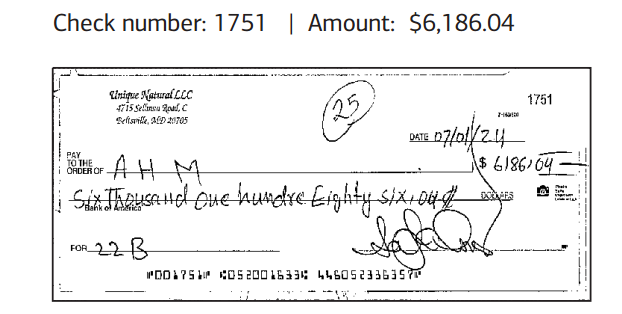 Check number: 1751 | Amount: $6,186.04
Unique Natural LLC
4715 Sellman Road, C
Beltsville, MD 20705
25
1751
DATE 07/01/24
PAY
TO THE
ORDER OF AHM
$ 6186,04
Six Thousand One hundre Eighty six, 04 ¢
DOLLARS
Bank of America
FOR 22 B
⑈001751⑈ ⑆052001633⑆ 446052336357⑈